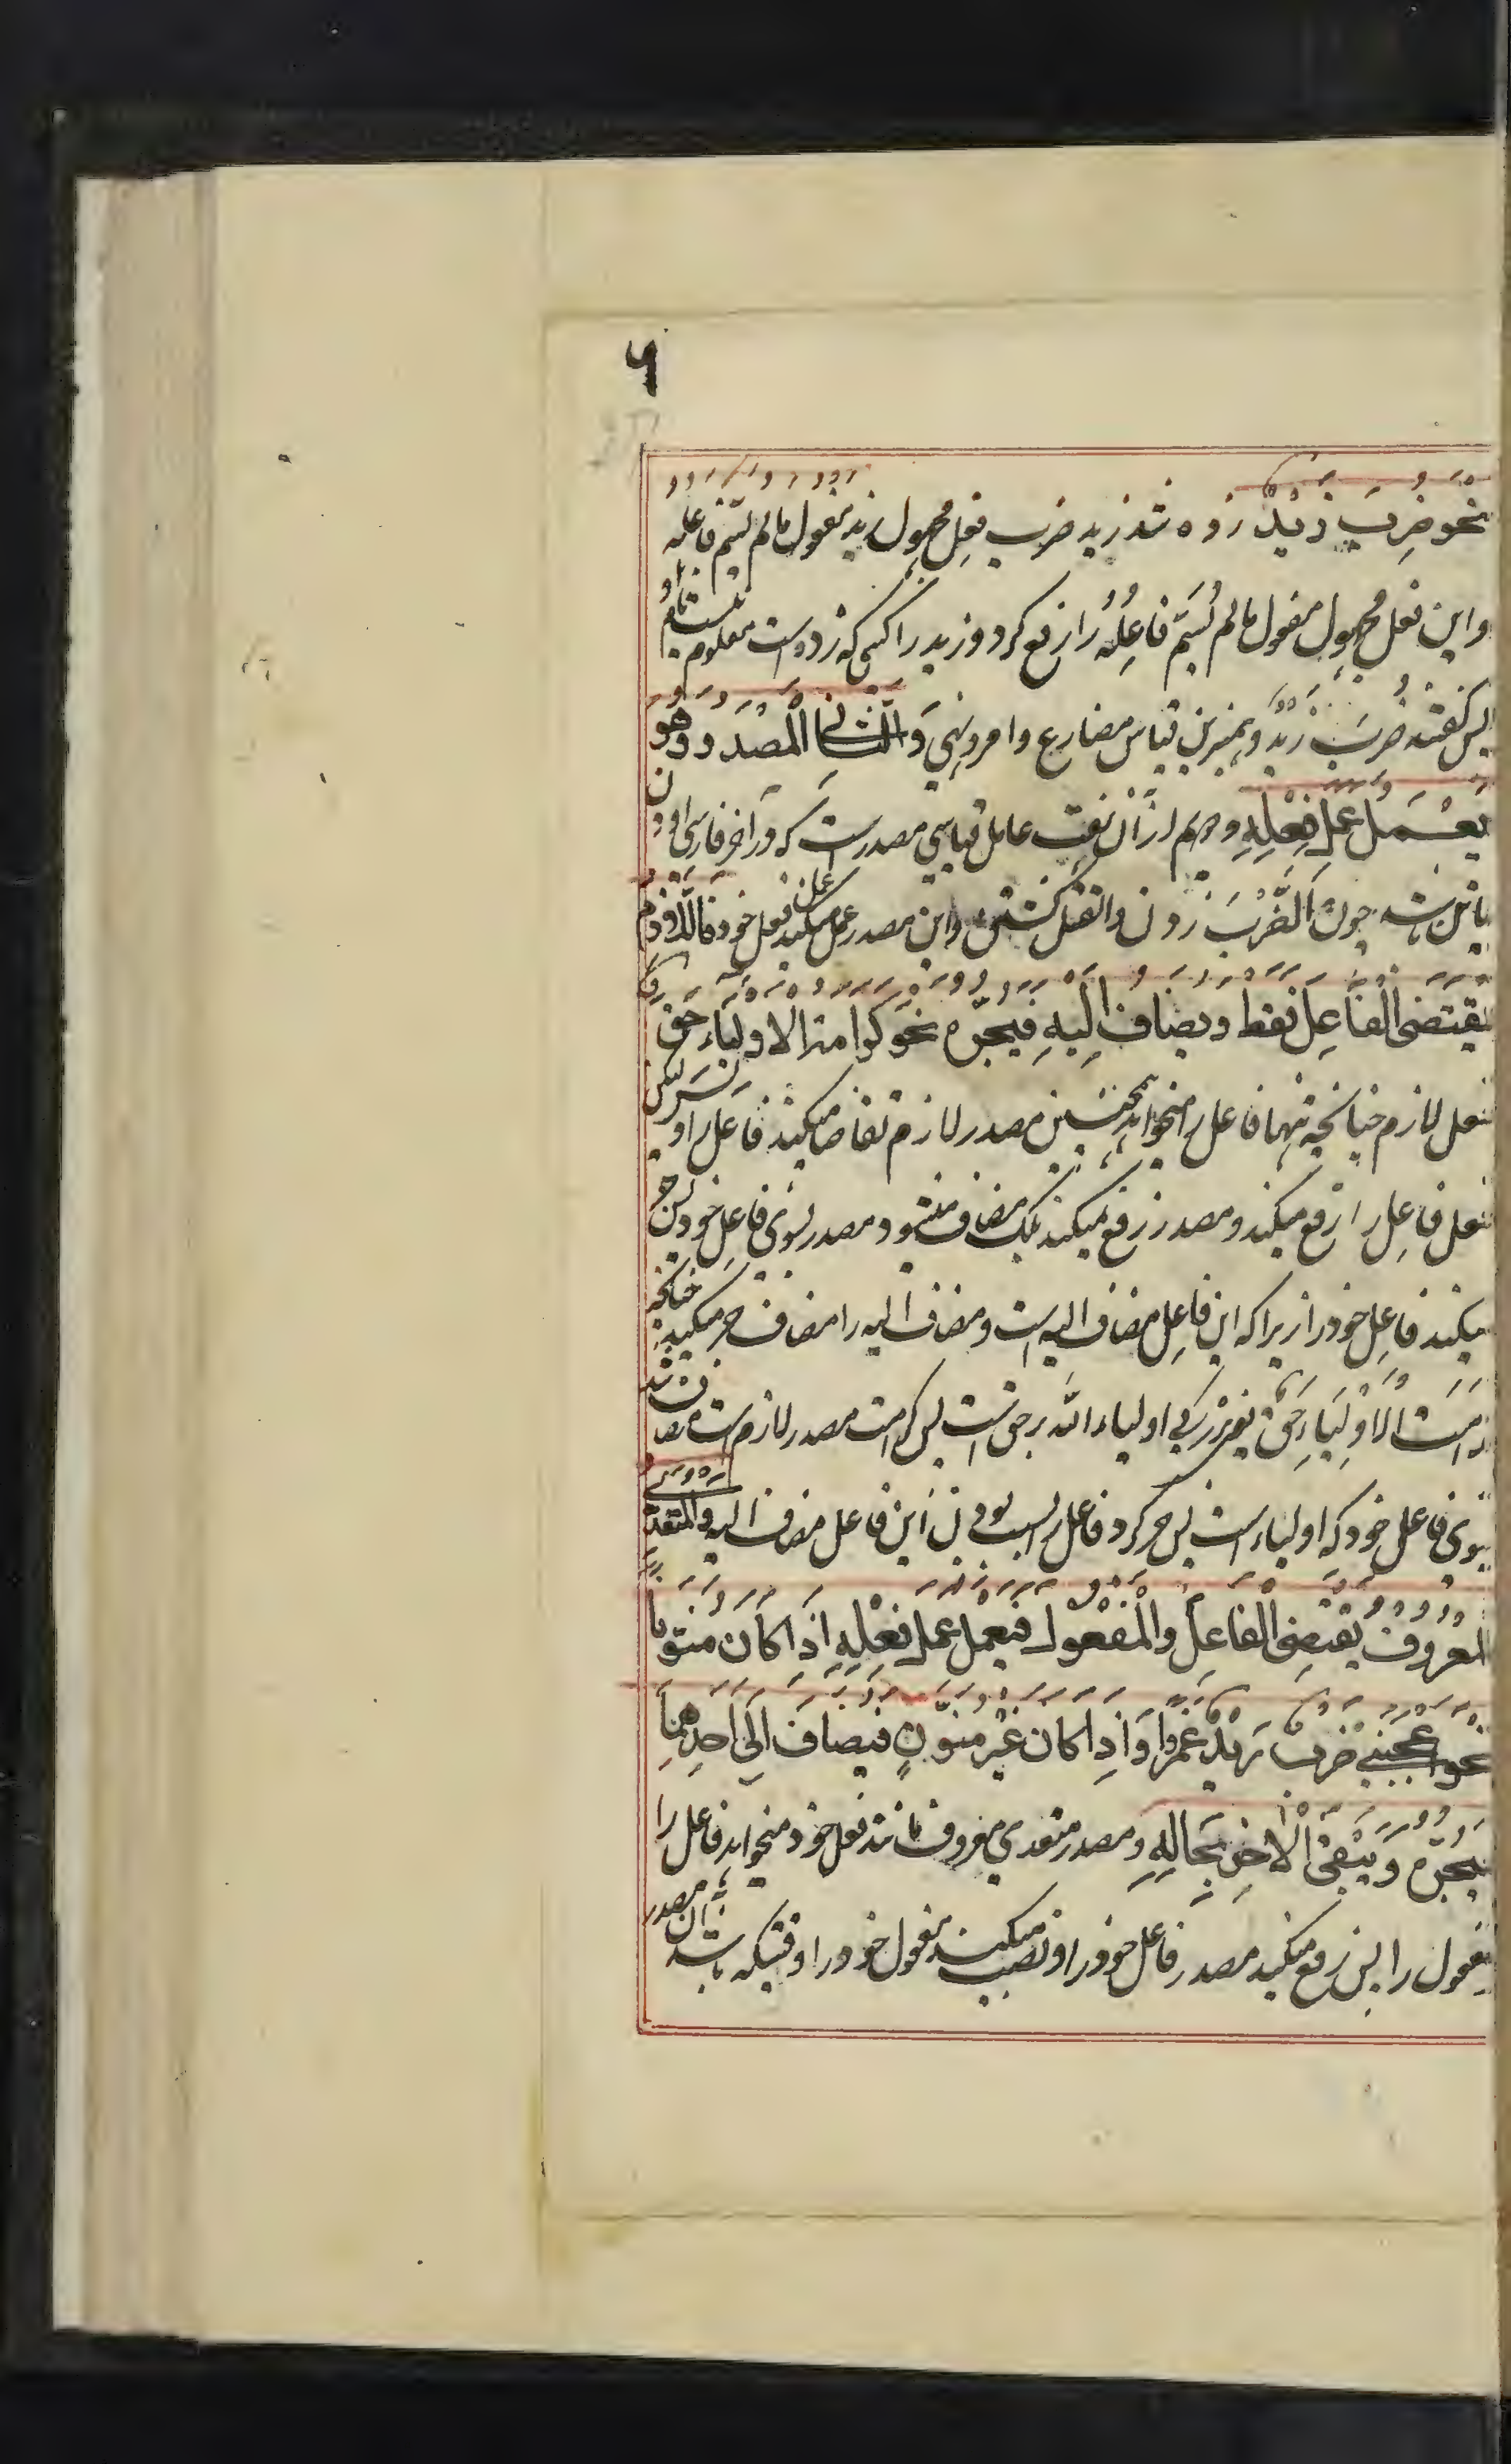 ٦
نحو ضُرِبَ زَیْدٌ زده شد زید ضرب فعل مجهول زید مفعول مالم یسم فاعله
واین فعل مجهول مفعول مالم یُسَمَّ فاعِلُهُ را رفع کرد و زید را کسی که زده است معلوم نیست
پس گفته ضُرِبَ زَیْدٌ وهمبرین قیاس مضارع وامر ونهی وَالثانی المَصْدَر وهو
یَعْمَلُ عمل فِعْلِهِ ودوم ازان هفت عامل قیاسی مصدرست که در آخر فارسی او دن
یا تن باشد چون اَلضَّرْبُ زدن والقتل کشتن واین مصدر عمل میکند عمل فعل خود فاللازم
یقتضی الفَاعِلَ فقط ویضاف اِلَیْهِ فیَجُرّه نحو کرامة الاولیاء حق
فعل لازم چنانچه تنها فاعل را میخواهد همچنین مصدر لازم تقاضا میکند فاعل را و لیکن
فعل فاعل را رفع میکند ومصدر رفع نمیکند بلکه مضاف میشود مصدر بسوی فاعل خود پس جر
میکند فاعل خود را زیرا که این فاعل مضاف الیه است ومضاف الیه را مضاف جر میکند چنانچه
کرامَتُ الاَوْلِیَاءِ حَقٌّ یعنی بزرگی اولیاء الله بر حق است پس کرامت مصدر لازم است مضاف شد
بسوی فاعل خود که اولیاء است پس جر کرد فاعل را بسبب بودن این فاعل مضاف الیه والمتعدی
المعروف یقتضی الفاعِلَ والمَفْعُولَ فیَعْمَل عمل فِعْلِهِ اِذَا کَانَ منوّنا
نحو اعجبنی ضربٌ زیدٌ عَمْرًوا وَاِذَا کَانَ غَیْر منوّنٍ فیضاف اِلَی اَحَدِهِمَا
فیجرّه وَیَبْقَی الْاٰخِر بِحَالِهِ ومصدر متعدی معروف مانند فعل خود میخواهد فاعل را
مفعول را پس رفع میکند مصدر فاعل خود را ونصب میکند مفعول خود را وقتیکه باشد آن مصدر